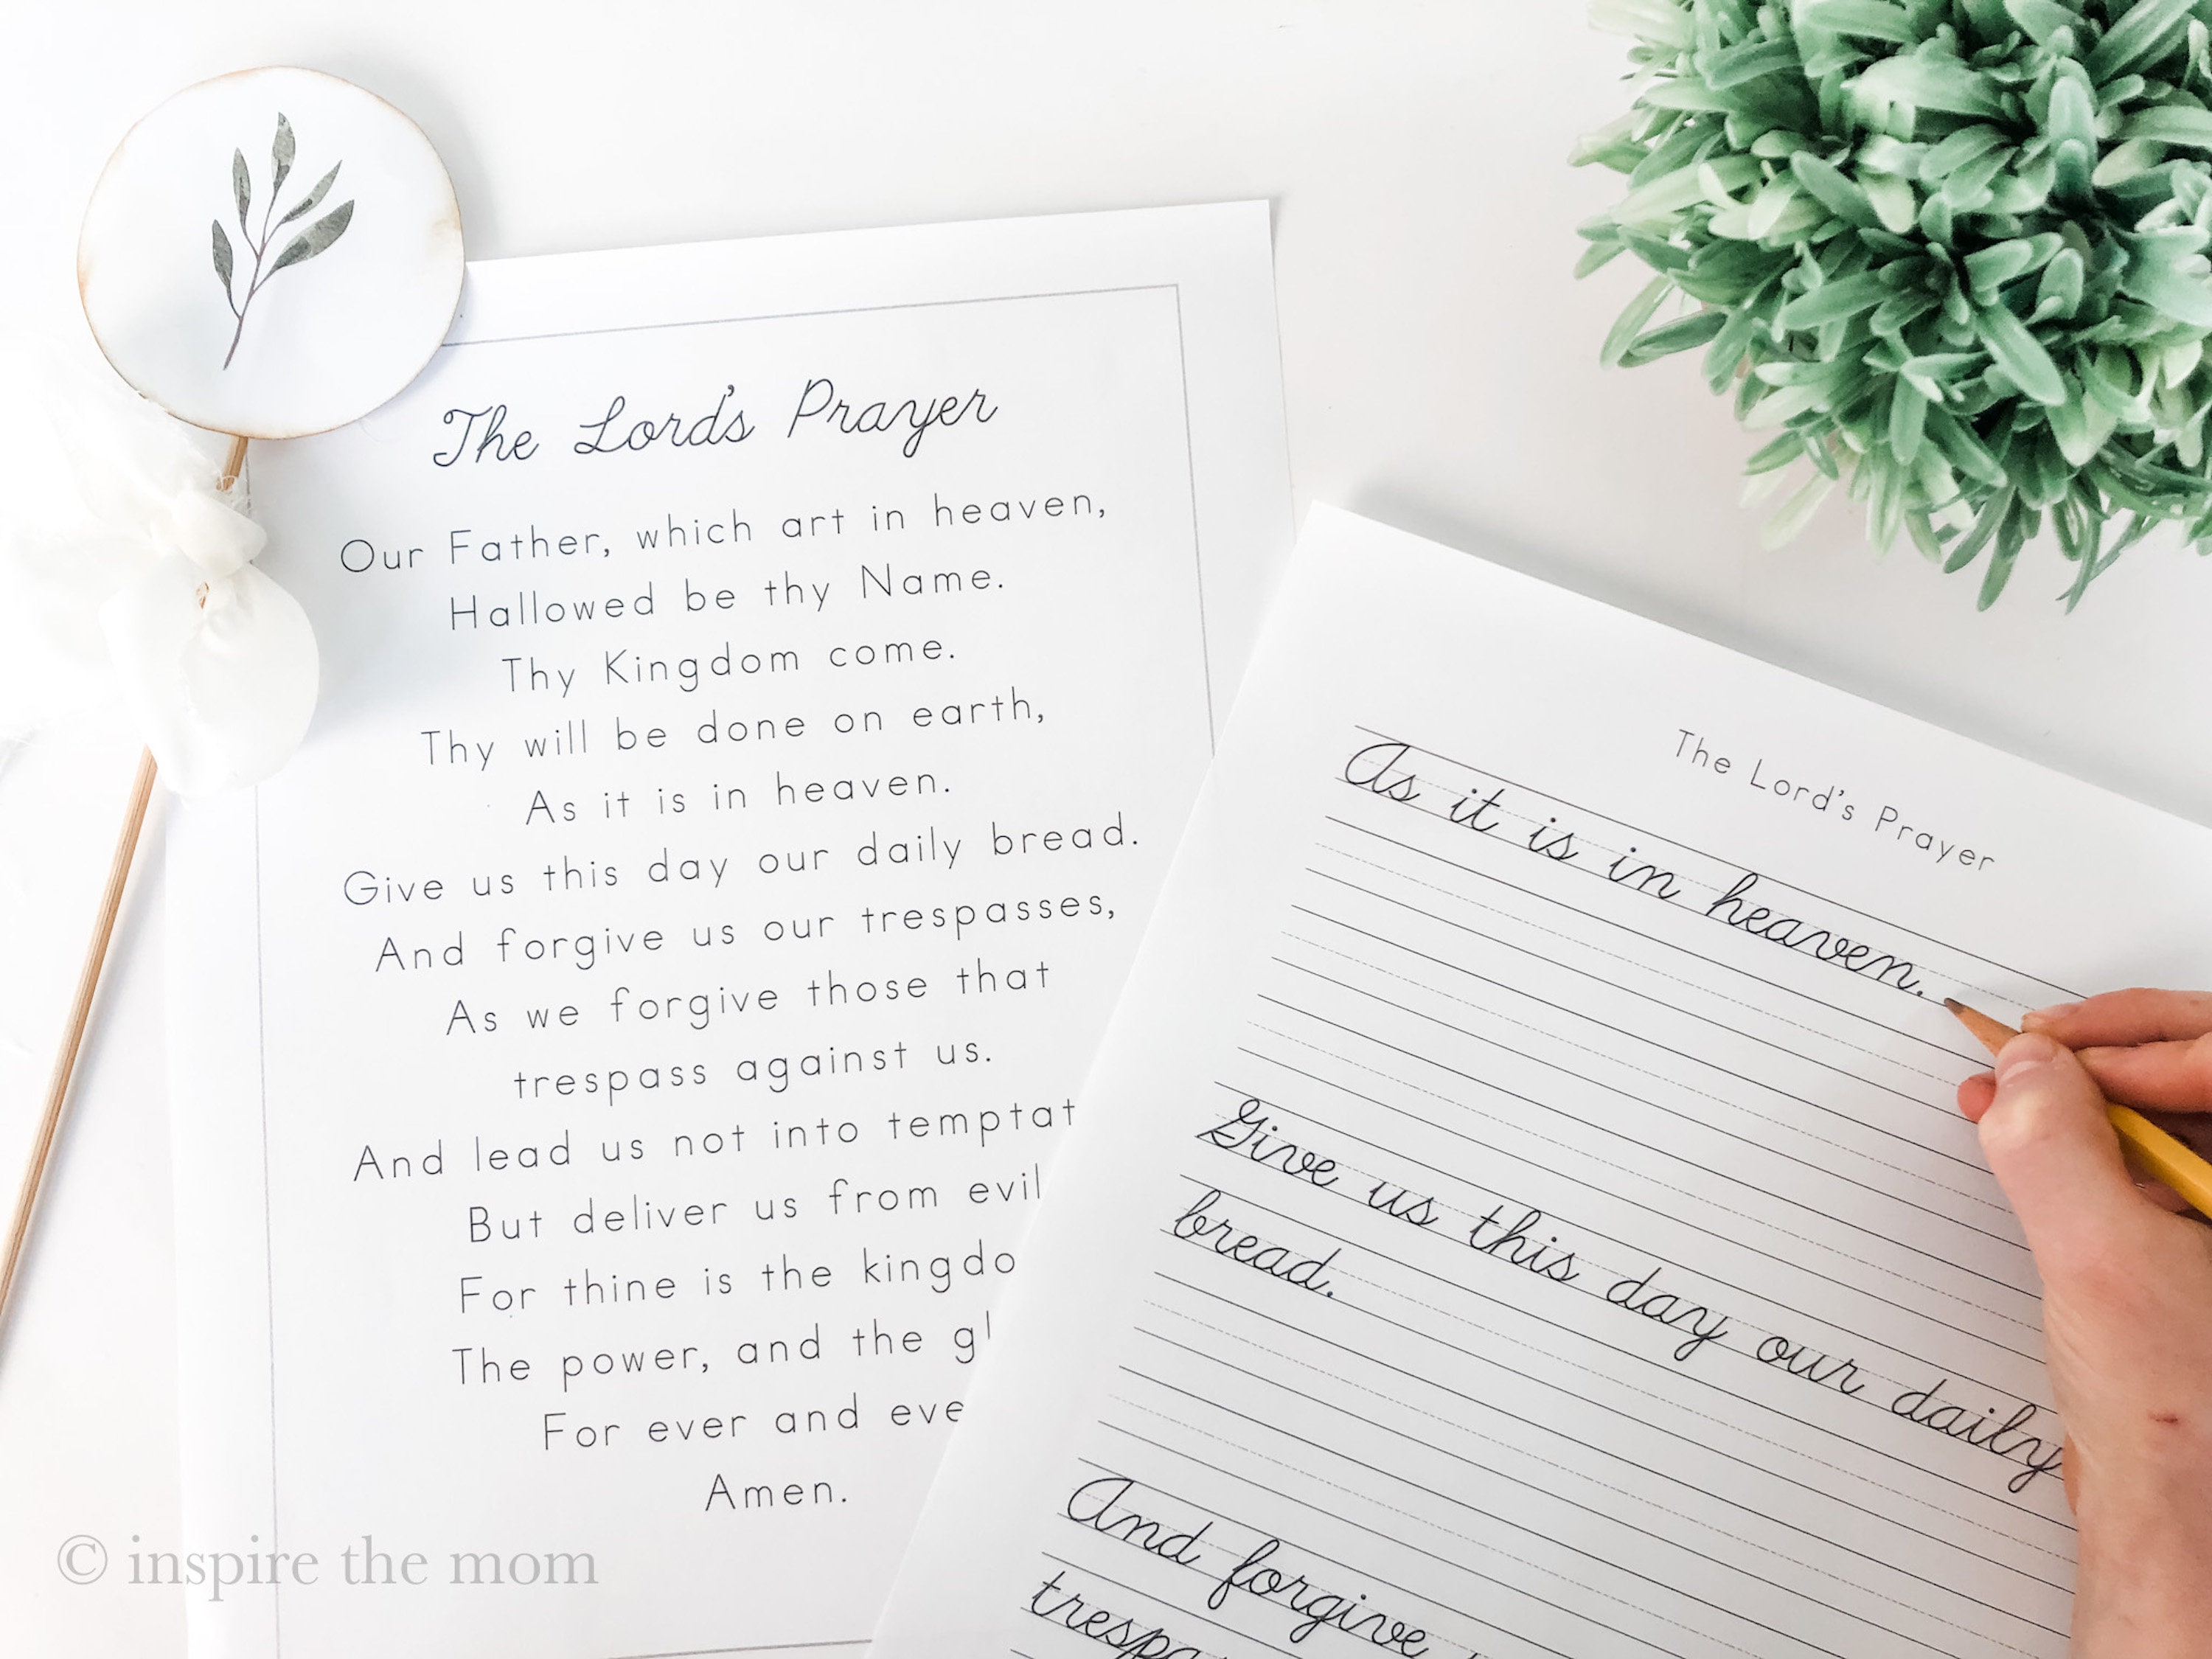 The Lord's Prayer
Our Father, which art in heaven,
Hallowed be thy Name.
Thy Kingdom come.
Thy will be done on earth,
As it is in heaven.
Give us this day our daily bread.
And forgive us our trespasses,
As we forgive those that
trespass against us.
And lead us not into
But deliver us from evil
For thine is the
The power, and the
For ever and
Amen.
The Lord's Prayer
As it is in heaven.
Give us this day our daily
bread.
And forgive
© inspire the mom